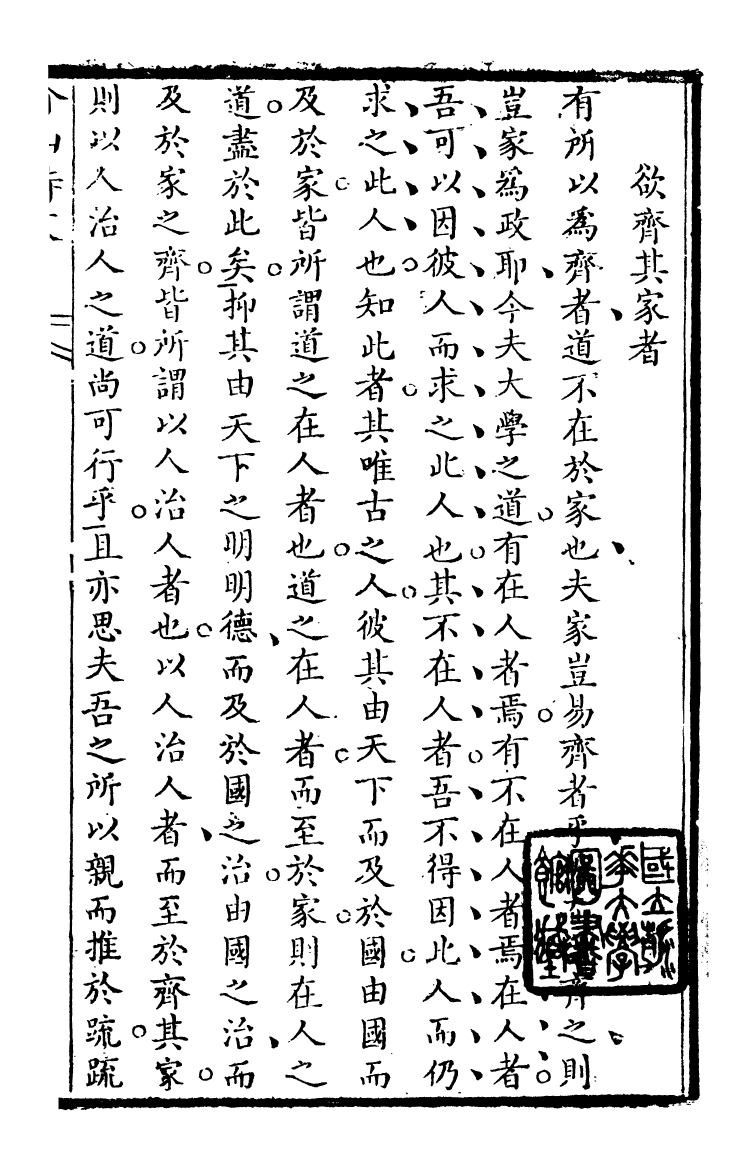 欲齊其家者
有所以為齊者道不在於家也夫家豈易齊者乎齊之則
豈家為政耶今夫大學之道有在人者焉有不在人者焉在人者
吾可以因彼人而求之此人也其不在人者吾不得因此人而仍
求之此人也知此者其唯古之人彼其由天下而及於國由國而
及於家皆所謂道之在人者也道之在人者而至於家則在人之
道盡於此矣抑其由天下之明明德而及於國之治由國之治而
及於家之齊皆所謂以人治人者也以人治人者而至於齊其家
則以人治人之道尚可行乎且亦思夫吾之所以親而推於疏疏
國立清華大學圖書館藏